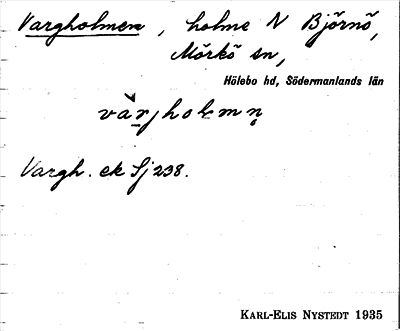 Vargholmen, holme N Björnö,
Mörkö sn,
Hölebo hd, Södermanlands län
vàrjholmn̥
Vargh. ek Sj 238.
KARL-ELIS NYSTEDT 1935